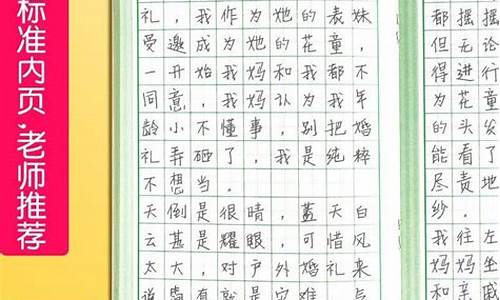 标准内页.老师推荐
礼，我作为她的表妹
受邀成为她的花童，
一开始我妈和我都不
同意，我妈认为我年
龄小不懂事，别把婚
礼弄砸了，我是纯粹
不想当。
天倒是很晴，蓝天白
云甚是耀眼，可惜风
太大，对户外婚礼来
说就是灾难
都摇摇
但无论
得进行
为花童
的头发
能看了
尽责地
纱。
我往左
妈妈坐
和亲戚